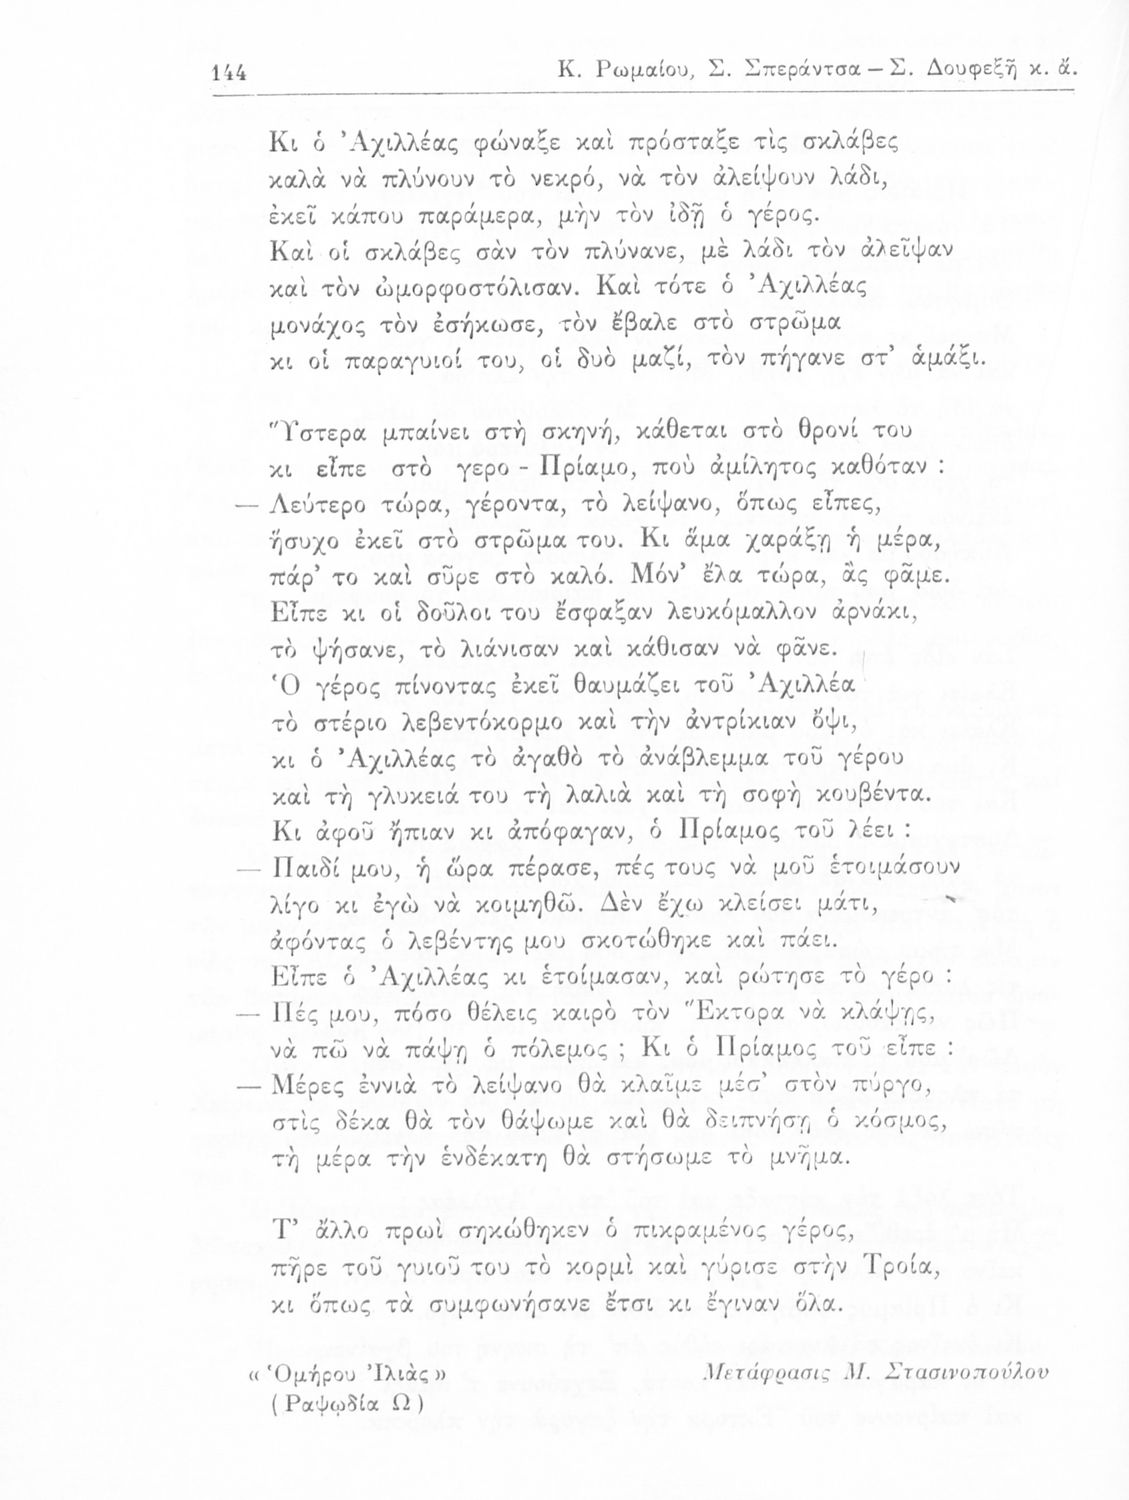 144
Κ. Ρωμαίου, Σ. Σπεράντσα – Σ. Δουφεξῆ κ. ἄ.
Κι ὁ Ἀχιλλέας φώναξε καὶ πρόσταξε τὶς σκλάβες
καλὰ νὰ πλύνουν τὸ νεκρό, νὰ τὸν ἀλείψουν λάδι,
ἐκεῖ κάπου παράμερα, μὴν τὸν ἰδῇ ὁ γέρος.
Καὶ οἱ σκλάβες σὰν τὸν πλύνανε, μὲ λάδι τὸν ἀλεῖψαν
καὶ τὸν ὡμορφοστόλισαν. Καὶ τότε ὁ Ἀχιλλέας
μονάχος τὸν ἐσήκωσε, τὸν ἔβαλε στὸ στρῶμα
κι οἱ παραγυιοί του, οἱ δυὸ μαζί, τὸν πήγανε στ’ ἁμάξι.
Ὕστερα μπαίνει στὴ σκηνή, κάθεται στὸ θρονί του
κι εἶπε στὸ γερο - Πρίαμο, ποὺ ἀμίλητος καθόταν :
— Λεύτερο τώρα, γέροντα, τὸ λείψανο, ὅπως εἶπες,
ἥσυχο ἐκεῖ στὸ στρῶμα του. Κι ἅμα χαράξῃ ἡ μέρα,
πάρ’ το καὶ σῦρε στὸ καλό. Μόν’ ἔλα τώρα, ἂς φᾶμε.
Εἶπε κι οἱ δοῦλοι του ἔσφαξαν λευκόμαλλον ἀρνάκι,
τὸ ψήσανε, τὸ λιάνισαν καὶ κάθισαν νὰ φᾶνε.
Ὁ γέρος πίνοντας ἐκεῖ θαυμάζει τοῦ Ἀχιλλέα
τὸ στέριο λεβεντόκορμο καὶ τὴν ἀντρίκιαν ὄψι,
κι ὁ Ἀχιλλέας τὸ ἀγαθὸ τὸ ἀνάβλεμμα τοῦ γέρου
καὶ τὴ γλυκειά του τὴ λαλιὰ καὶ τὴ σοφὴ κουβέντα.
Κι ἀφοῦ ἤπιαν κι ἀπόφαγαν, ὁ Πρίαμος τοῦ λέει :
— Παιδί μου, ἡ ὥρα πέρασε, πές τους νὰ μοῦ ἑτοιμάσουν
λίγο κι ἐγὼ νὰ κοιμηθῶ. Δὲν ἔχω κλείσει μάτι,
ἀφόντας ὁ λεβέντης μου σκοτώθηκε καὶ πάει.
Εἶπε ὁ Ἀχιλλέας κι ἑτοίμασαν, καὶ ρώτησε τὸ γέρο :
— Πές μου, πόσο θέλεις καιρὸ τὸν Ἕκτορα νὰ κλάψῃς,
νὰ πῶ νὰ πάψῃ ὁ πόλεμος ; Κι ὁ Πρίαμος τοῦ εἶπε :
— Μέρες ἐννιὰ τὸ λείψανο θὰ κλαῖμε μέσ’ στὸν πύργο,
στὶς δέκα θὰ τὸν θάψωμε καὶ θὰ δειπνήσῃ ὁ κόσμος,
τὴ μέρα τὴν ἑνδέκατη θὰ στήσωμε τὸ μνῆμα.
Τ’ ἄλλο πρωὶ σηκώθηκεν ὁ πικραμένος γέρος,
πῆρε τοῦ γυιοῦ του τὸ κορμὶ καὶ γύρισε στὴν Τροία,
κι ὅπως τὰ συμφωνήσανε ἔτσι κι ἔγιναν ὅλα.
« Ὁμήρου Ἰλιὰς »
Μετάφρασις Μ. Στασινοπούλου
( Ραψῳδία Ω )